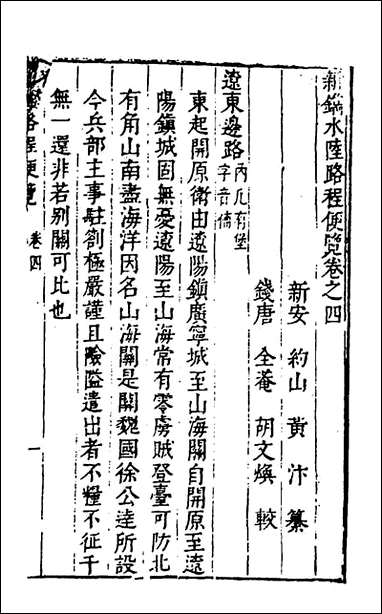 新鐫水陸路程便覽卷之四
新安 約山 黃 汴 纂
錢唐 全菴 胡文煥 較
遼東邊路 丙凡有堡字音倚
東起開原衛由遼陽鎮廣寧城至山海關自開原至遼
陽鎮城固無憂遼陽至山海常有零虜賊登臺可防北
有角山南盡海洋因名山海關是關魏國徐公達所設
今兵部主事駐劄極嚴謹且險隘遣出者不糧不征千
無一還非若别關可比也
路程便覽 卷四 一